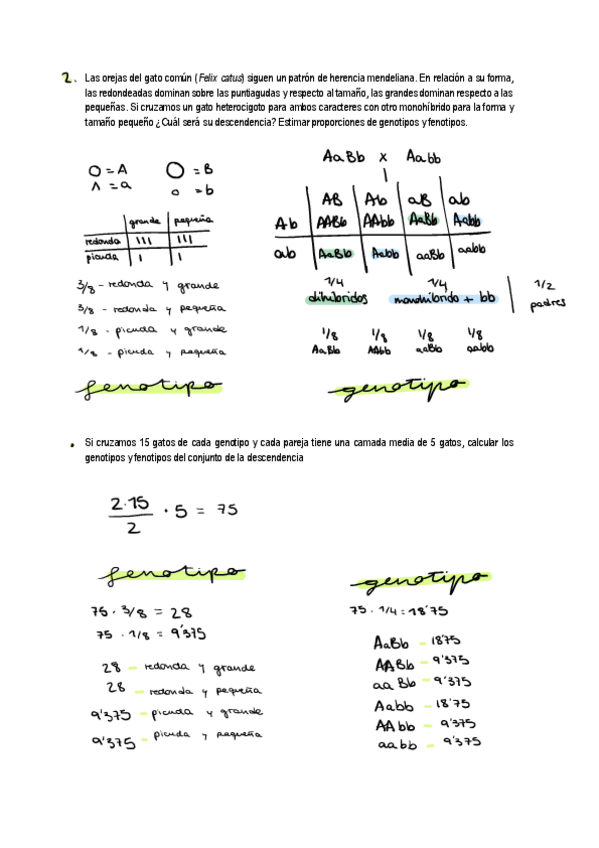 2. Las orejas del gato común (Felix catus) siguen un patrón de herencia mendeliana. En relación a su forma,
las redondeadas dominan sobre las puntiagudas y respecto al tamaño, las grandes dominan respecto a las
pequeñas. Si cruzamos un gato heterocigoto para ambos caracteres con otro monohíbrido para la forma y
tamaño pequeño ¿Cuál será su descendencia? Estimar proporciones de genotipos y fenotipos.
O = A O = B
Λ = a o = b
grande pequeña
redonda III III
picuda I I
3/8 - redonda y grande
3/8 - redonda y pequeña
1/8 - picuda y grande
1/8 - picuda y pequeña
fenotipo
AaBb x Aabb
AB Ab aB ab
Ab AABb AAbb AaBb Aabb
ab AaBb Aabb aaBb aabb
1/4 1/4 1/2
dihíbridos monohíbrido + bb padres
1/8 1/8 1/8 1/8
AaBb AAbb aaBb aabb
genotipo
• Si cruzamos 15 gatos de cada genotipo y cada pareja tiene una camada media de 5 gatos, calcular los
genotipos y fenotipos del conjunto de la descendencia
2·15
2
· 5 = 75
fenotipo
75 · 3/8 = 28
75 · 1/8 = 9'375
28 - redonda y grande
28 - redonda y pequeña
9'375 - picuda y grande
9'375 - picuda y pequeña
genotipo
75 · 1/4 = 18'75
AaBb - 1875
AABb - 9'375
aaBb - 9'375
Aabb - 18'75
AAbb - 9'375
aabb - 9'375